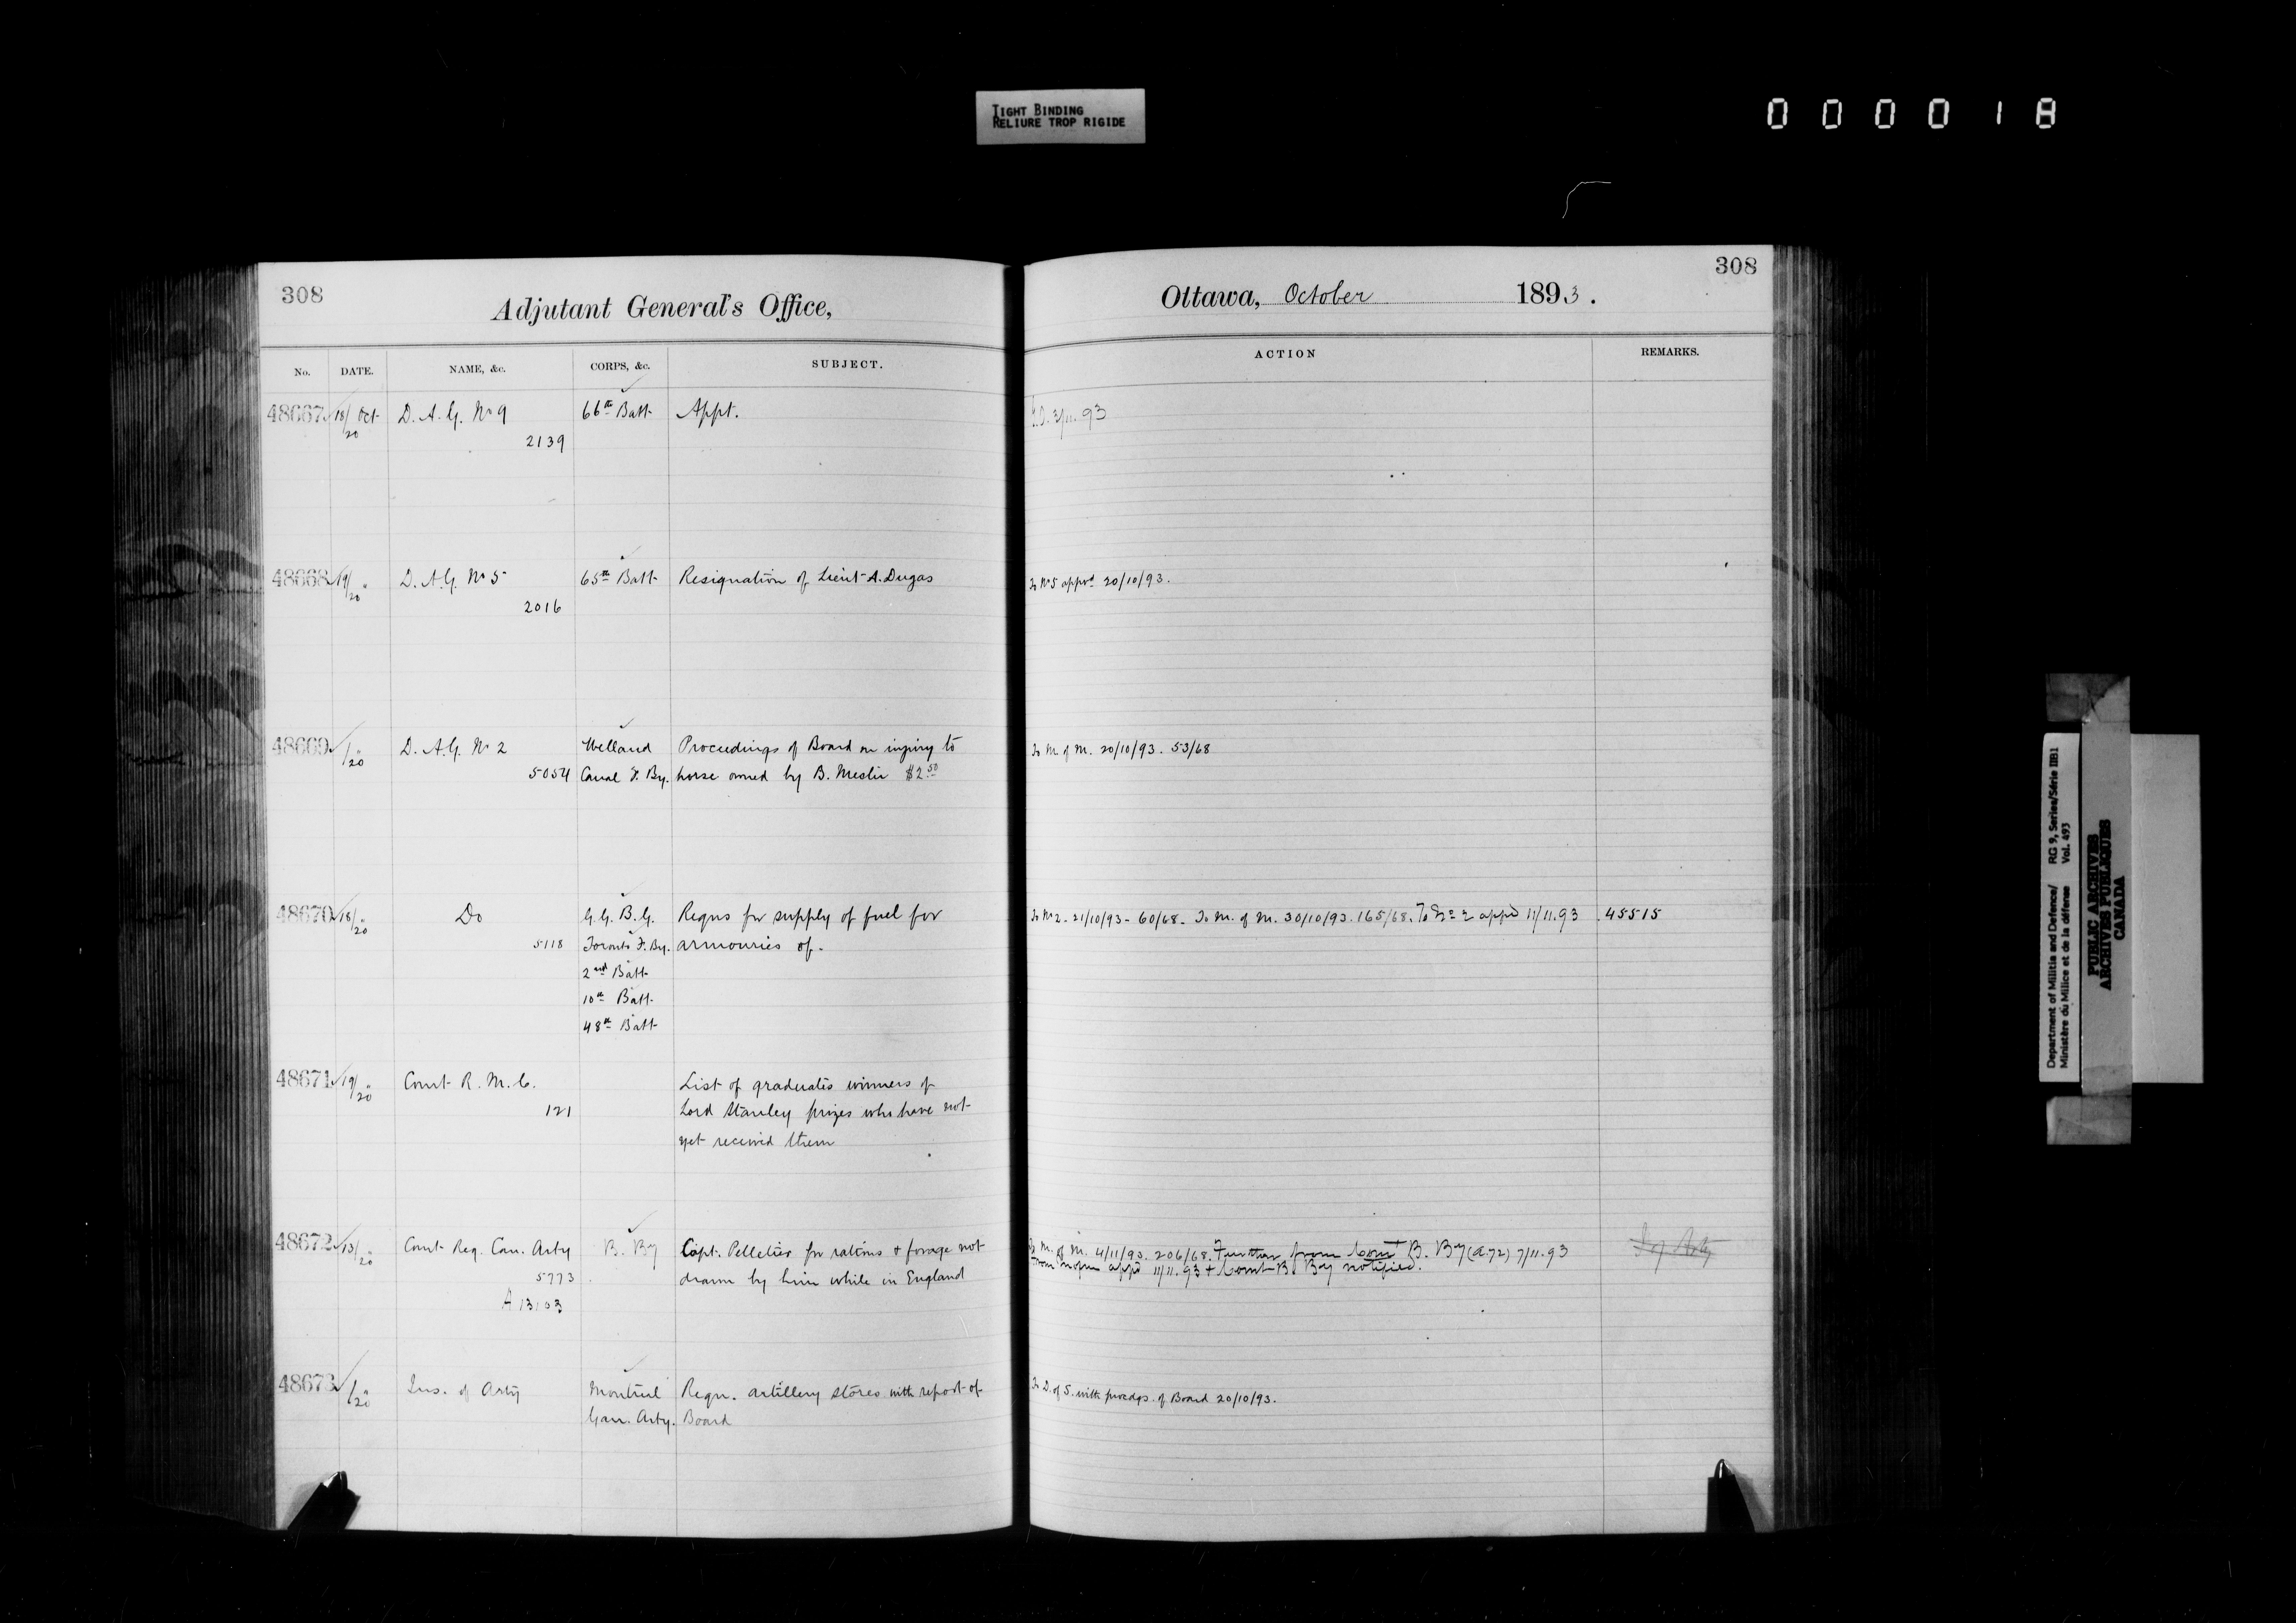 TIGHT BINDING
RELIURE TROP RIGIDE
000018
308
Adjutant General's Office,
No. DATE. NAME, &c. CORPS, &c. SUBJECT.
48667 18/20 Oct D. A. G. No 9 66th Batt Appt.
2139
48668 19/20 " D. A. G. No 5 65th Batt Resignation of Lieut A. Dugas
2016
48669 /20 " D. A. G. No 2 Welland Proceedings of Board on injury to
5054 Canal F. By. horse owned by B. $2.50
48670 18/20 " Do G. G. B. G. Requs for supply of fuel for
5118 Toronto F. By. armouries of.
2nd Batt
10th Batt
48th Batt
48671 19/20 " Comt R. M. C. List of graduates winners of
121 Lord Stanley prizes who have not
yet received them
48672 13/20 " Comt Reg. Can. Arty B. By Capt. Pelletier for rations & forage not
5773 drawn by him while in England
A 13103
48673 /20 " Ins. of Arty Montreal Requ. artillery stores with report of
Garr. Arty. Board
308
Ottawa, October 1893.
ACTION REMARKS.
G.O. 3/11.93
To No 5 appvd 20/10/93.
To M. of M. 20/10/93. 53/68
To No 2 - 21/10/93 - 60/68 - To M. of M. 30/10/93. 165/68. To appd 11/11.93 45515
To M. of M. 4/11/93. 206/68. Further from Comt B. By (A.72) 7/11.93
From appd 11/11.93 & Comt B By notified.
To D. of S. with procdgs. of Board 20/10/93.
Department of Militia and Defence/ RG 9, Series/Série IIB1
Ministère du Milice et de la défense Vol. 493
PUBLIC ARCHIVES
ARCHIVES PUBLIQUES
CANADA